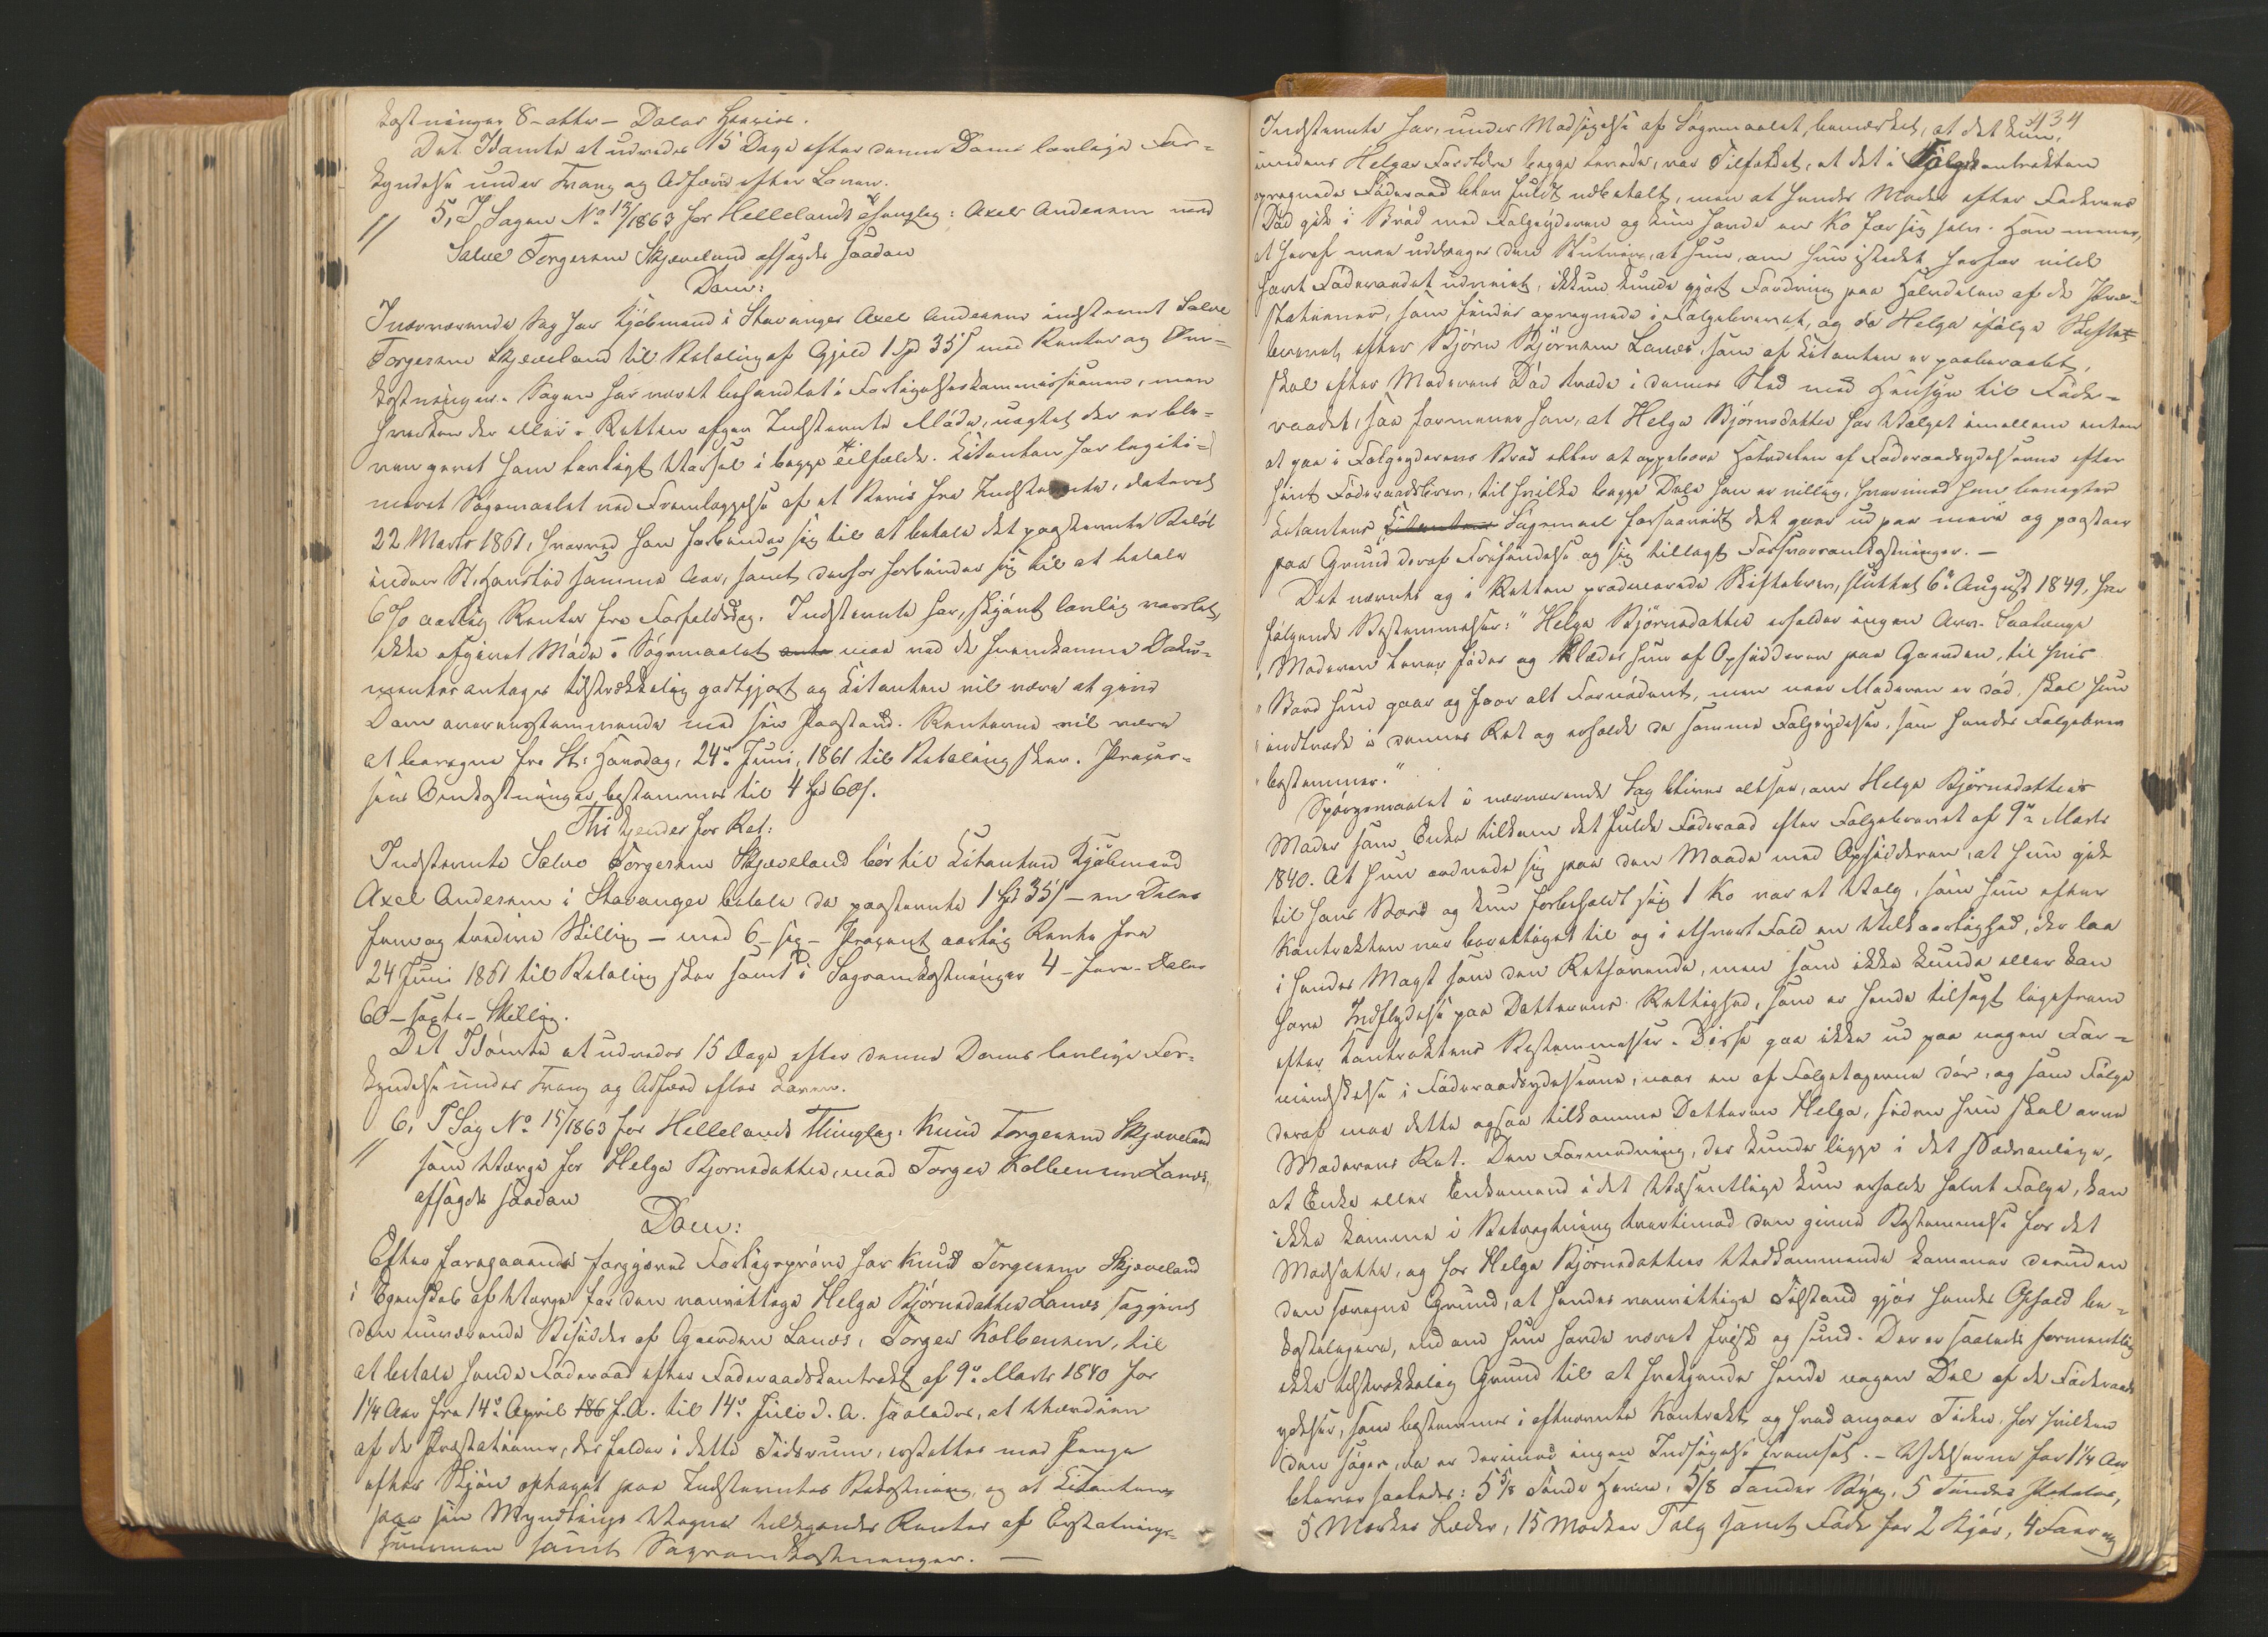 kostninger 8 - otte - Daler
Det Idømte at udredes 15 Dage efter denne Doms lovlige For-
kyndelse under Tvang og Adfærd efter Loven.
5, I Sagen No 12/1863 for Hellelands Thinglag: Axel Andersen mod
Salve Torgersen Skjæveland afsagdes saadan
Dom:
I nærværende Sag har Kjøbmand i Stavanger Axel Andersen indstevnt Salve
Torgersen Skjæveland til Betaling af Gjæld 1 Spd 35 s med Renter og Om-
kostninger. Sagen har været behandlet i Forligelseskommissionen, men
hverken der eller i Retten afgav Indstevnte Møde, uagtet der er ble-
ven givet ham lovligt Varsel i begge Tilfælde. Citanten har legiti-
meret Søgsmaalet ved Fremlæggelse af et Bevis fra Indstevnte, dateret
22 Marts 1861, hvorved han forbinder sig til at betale det paastevnte Beløb
inden St. Hanstid samme Aar, samt derfor forbinder sig til at betale
6% aarlig Renter fra Forfaldsdag. Indstevnte har, skjønt lovlig varslet,
ikke afgivet Møde i Søgsmaalet maa ved de fremkomne Doku-
menter antages tilstrækkelig godtgjort og Citanten vil være at give
Dom overensstemmende med sin Paastand. Renterne vil være
at beregne fra St: Hansdag, 24de Juni, 1861 til Betaling sker. Proces-
sens Omkostninger bestemmes til 4 Spd 60 s.
Thi kjendes for Ret:
Indstevnte Salve Torgersen Skjæveland bør til Citanten Kjøbmand
Axel Andersen i Stavanger betale de paastevnte 1 Spd 35 s - en Daler
fem og tredive Skilling - med 6 - sex - Procent aarlig Rente fra
24 Juni 1861 til Betaling sker samt i Sagsomkostninger 4 - fire - Daler
60 - sexti - Skilling.
Det Idømte at udredes 15 Dage efter denne Doms lovlige For-
kyndelse under Tvang og Adfærd efter Loven.
6, I Sag No 15/1863 for Hellelands Thinglag: Knud Torgersen Skjæveland
som Værge for Helga Bjørnsdatter, mod Torger Kolbensen Lanes,
afsagdes saadan
Dom:
Efter foregaaende forgjæves Forligsprøve har Knud Torgersen Skjæveland
i Egenskab af Værge for den vanvittige Helga Bjørnsdatter Lanes sagsøgt
den nuværende Besidder af Gaarden Lanes, Torger Kolbensen, til
at betale hende Føderaad efter Føderaadskontrakt af 9de Marts 1840 for
1¼ Aar fra 14de April 186 f. A. til 14de Juli d. A. saaledes, at Værdien
af de Præstationer, der falder i dette Tidsrum, erstattes med Penge
efter Skjøn optaget paa Indstevntes Bekostning, og at Citanten
paa sin Myndlings Vegne tilkjendes Renter af Erstatnings-
summen samt Sagsomkostninger. —
434
Indstevnte har, under Modsigelse af Søgsmaalet, bemærket, at det kun,
imedens Helgas Forældre begge levede, var Tilfældet, at det i Følgekontrakten
opregnede Føderaad blev fuldt udbetalt, men at hendes Moder efter Faderens
Død gik i Brød med Følgeyderen og kun havde en Ko for sig selv. Han mener,
at heraf maa uddrages den Slutning, at hun, om hun istedet herfor vilde
havt Føderaadet udredet, ikkun kunde gjort Fordring paa Halvdelen af de Præ-
stationer, som findes opregnede i Følgebrevet, og da Helga ifølge Skifte-
brevet efter Bjørn Bjørnsen Lanes, som af Citanten er paaberaabt,
skal efter Moderens Død træde i dennes Sted med Hensyn til Føde-
raadet, saa formener han, at Helga Bjørnsdatter har Valget imellem enten
at gaa i Følgeyderens Brød eller at oppebære Halvdelen af Føderaadsydelserne efter
hint Føderaadsbrev, til hvilke begge Dele han er villig, hvorimod han benegter
Citantens Søgsmaal forsaavidt det gaar ud paa mere og paastaar
paa Grund deraf Frifindelse og sig tillagt Forsvarsomkostninger. —
Det nævnte og i Retten producerede Skiftebrev, sluttet 6te August 1849, har
følgende Bestemmelser: "Helga Bjørnsdatter erholder ingen Arv. Saalænge
"Moderen lever fødes og klædes hun af Opsidderen paa Gaarden, til hvis
"Bord hun gaar og faar alt Fornødent, men naar Moderen er død, skal hun
"indtræde i dennes Ret og erholde de samme Følgeydelser, som hendes Følgebrev
"bestemmer."
Spørgsmaalet i nærværende Sag bliver altsaa, om Helga Bjørnsdatters
Moder som Enke tilkom det fulde Føderaad efter Følgebrevet af 9de Marts
1840. At hun ordnede sig paa den Maade med Opsidderen, at hun gik
til hans Bord og kun forbeholdt sig 1 Ko var et Valg, som hun efter
Kontrakten var berettiget til og i ethvert Fald en Vilkaarlighed, der laa
i hendes Magt som den Rethavende, men som ikke kunde eller kan
have Indflydelse paa Datterens Rettighed, som er hende tilsagt ligefrem
efter Kontraktens Bestemmelser. Disse gaa ikke ud paa nogen For-
mindskelse i Føderaadsydelserne, naar en af Følgetagerne dør, og som Følge
deraf maa dette ogsaa tilkomme Datteren Helga, siden hun skal arve
Moderens Ret. Den Formodning, der kunde ligge i det Sædvanlige,
at Enke eller Enkemand i det Væsentlige kun erholde halvt Følge, kan
ikke komme i Betragtning tvertimod den givne Bestemmelse for det
Modsatte, og for Helga Bjørnsdatters Vedkommende kommer desuden
den særegne Grund, at hendes vanvittige Tilstand gjør hendes Ophold be-
kosteligere, end om hun havde været frisk og sund. Der er saaledes formentlig
ikke tilstrækkelig Grund til at frakjende hende nogen Del af de Føderaads-
ydelser, som bestemmes i oftnævnte Kontrakt, og hvad angaar Tiden, for hvilken
den søges, da er derimod ingen Indsigelse fremsat. — Ydelserne for 1¼ Aar
bliver saaledes: 5 5/8 Tønde Havre, 5/8 Tønder Byg, 5 Tønder Poteter,
5 Marker Læder, 15 Marker Talg samt Føde for 2 Kjør, 4 Faar og